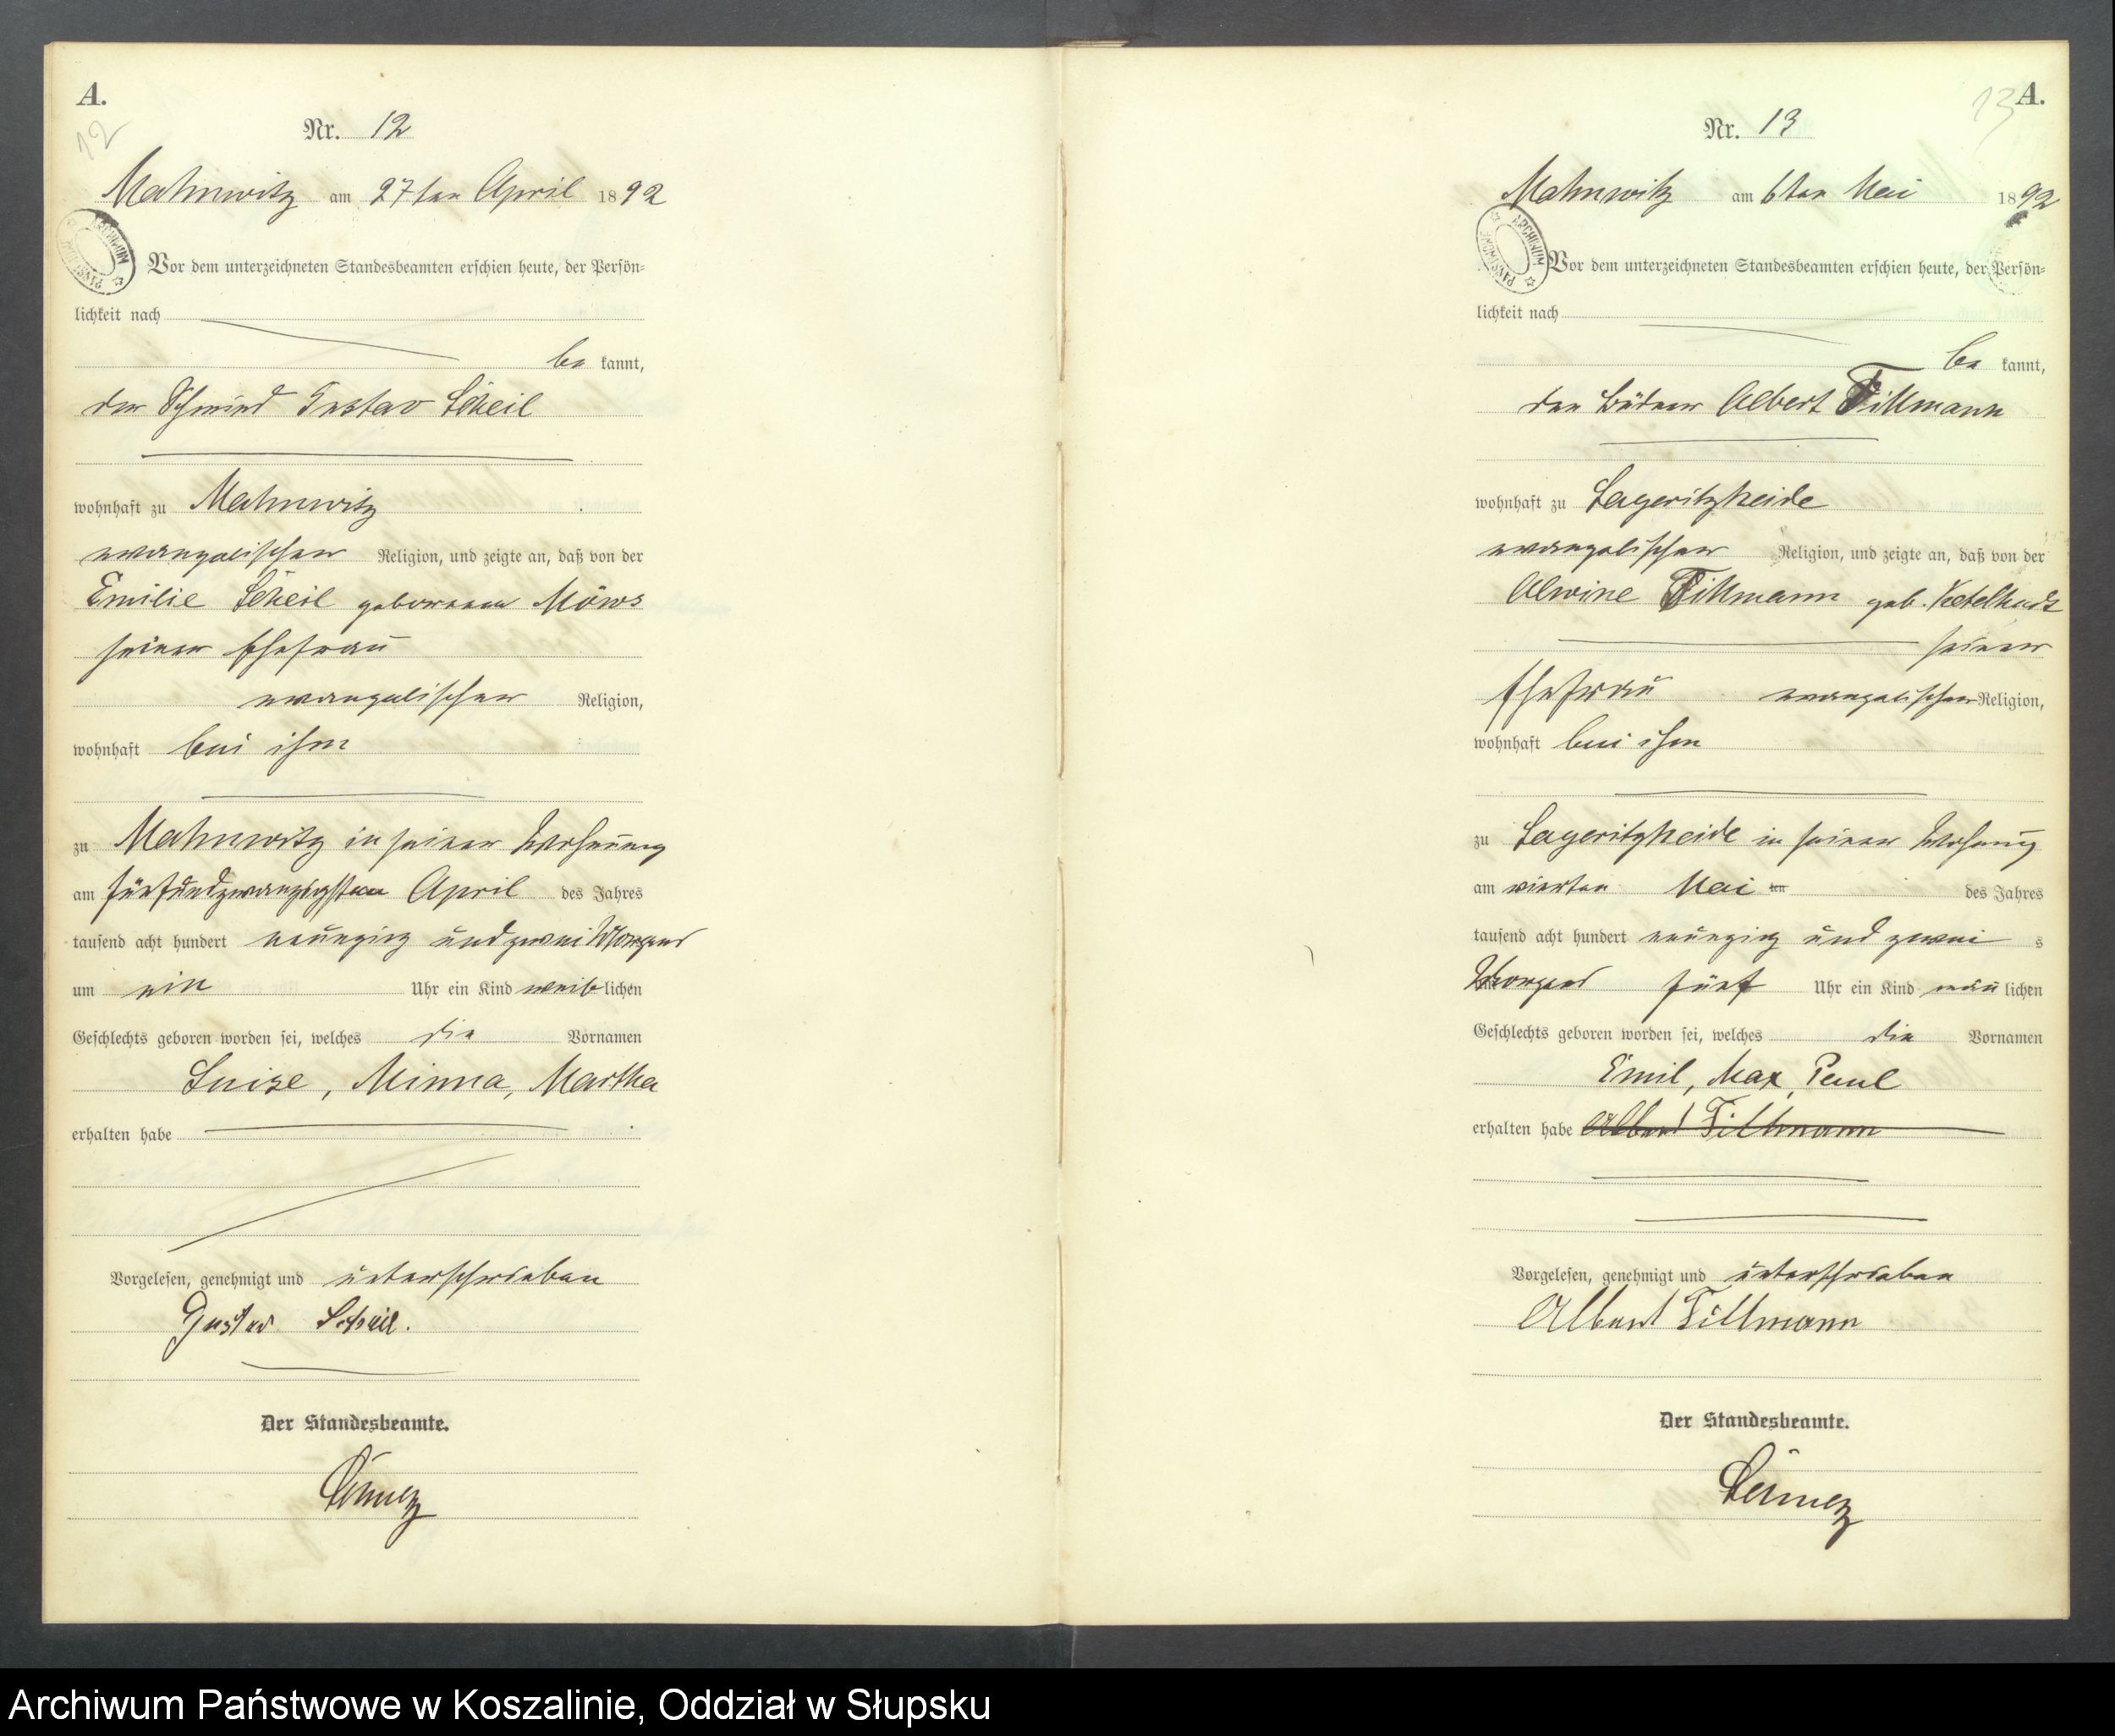 A.
12
Nr. 12
Mahnwitz am 27ten April 1892
Vor dem unterzeichneten Standesbeamten erschien heute, der Persön-
lichkeit nach
be kannt,
der Schmied Gustav Scheil
wohnhaft zu Mahnwitz
evangelischer Religion, und zeigte an, daß von der
Emilie Scheil geborenen Möws
seiner Ehefrau
evangelischer Religion,
wohnhaft bei ihm
zu Mahnwitz in seiner Wohnung
am fünfundzwanzigsten April des Jahres
tausend acht hundert neunzig und zwei Morgens
um ein Uhr ein Kind weib lichen
Geschlechts geboren worden sei, welches die Vornamen
Luise, Minna, Martha
erhalten habe
Vorgelesen, genehmigt und unterschrieben
Gustav Scheil.
Der Standesbeamte.
ARCHIWUM PAŃSTWOWE
A.
13
Nr. 13
Mahnwitz am 6ten Mai 1892
Vor dem unterzeichneten Standesbeamten erschien heute, der Persön-
lichkeit nach
be kannt,
der Büdner Albert Tillmann
wohnhaft zu Lageritzheide
evangelischer Religion, und zeigte an, daß von der
Alwine Tillmann geb.
seiner
Ehefrau evangelischer Religion,
wohnhaft bei ihm
zu Lageritzheide in seiner Wohnung
am vierten Mai ten des Jahres
tausend acht hundert neunzig und zwei s
Morgens fünf Uhr ein Kind män lichen
Geschlechts geboren worden sei, welches die Vornamen
Emil, Max, Paul
erhalten habe Albert Tillmann
Vorgelesen, genehmigt und unterschrieben
Albert Tillmann
Der Standesbeamte.
ARCHIWUM PAŃSTWOWE
Archiwum Państwowe w Koszalinie, Oddział w Słupsku